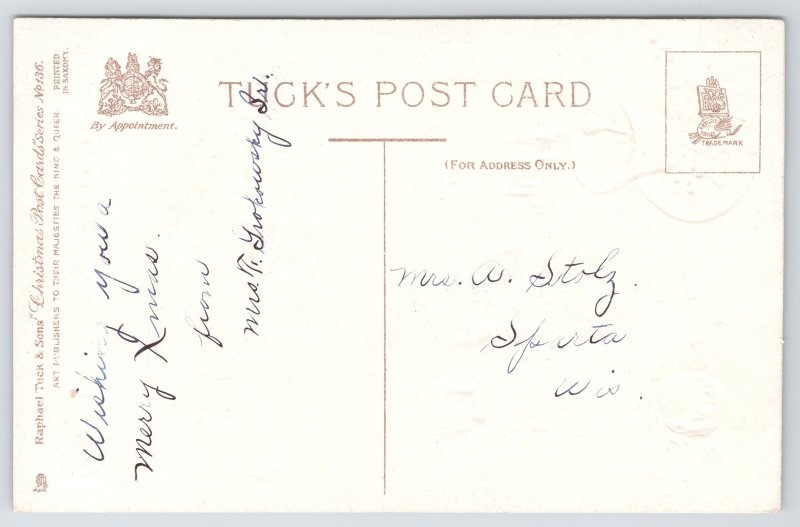 TUCK'S POST CARD
By Appointment.
(FOR ADDRESS ONLY.)
TRADE MARK
Raphael Tuck & Sons' "Christmas Post Cards" Series No 136.
PRINTED
IN SAXONY.
ART PUBLISHERS TO THEIR MAJESTIES THE KING & QUEEN.
Wishing you a
Merry Xmas.
from
Mrs.
Mrs. A. Stolz.
Sparta
Wis.